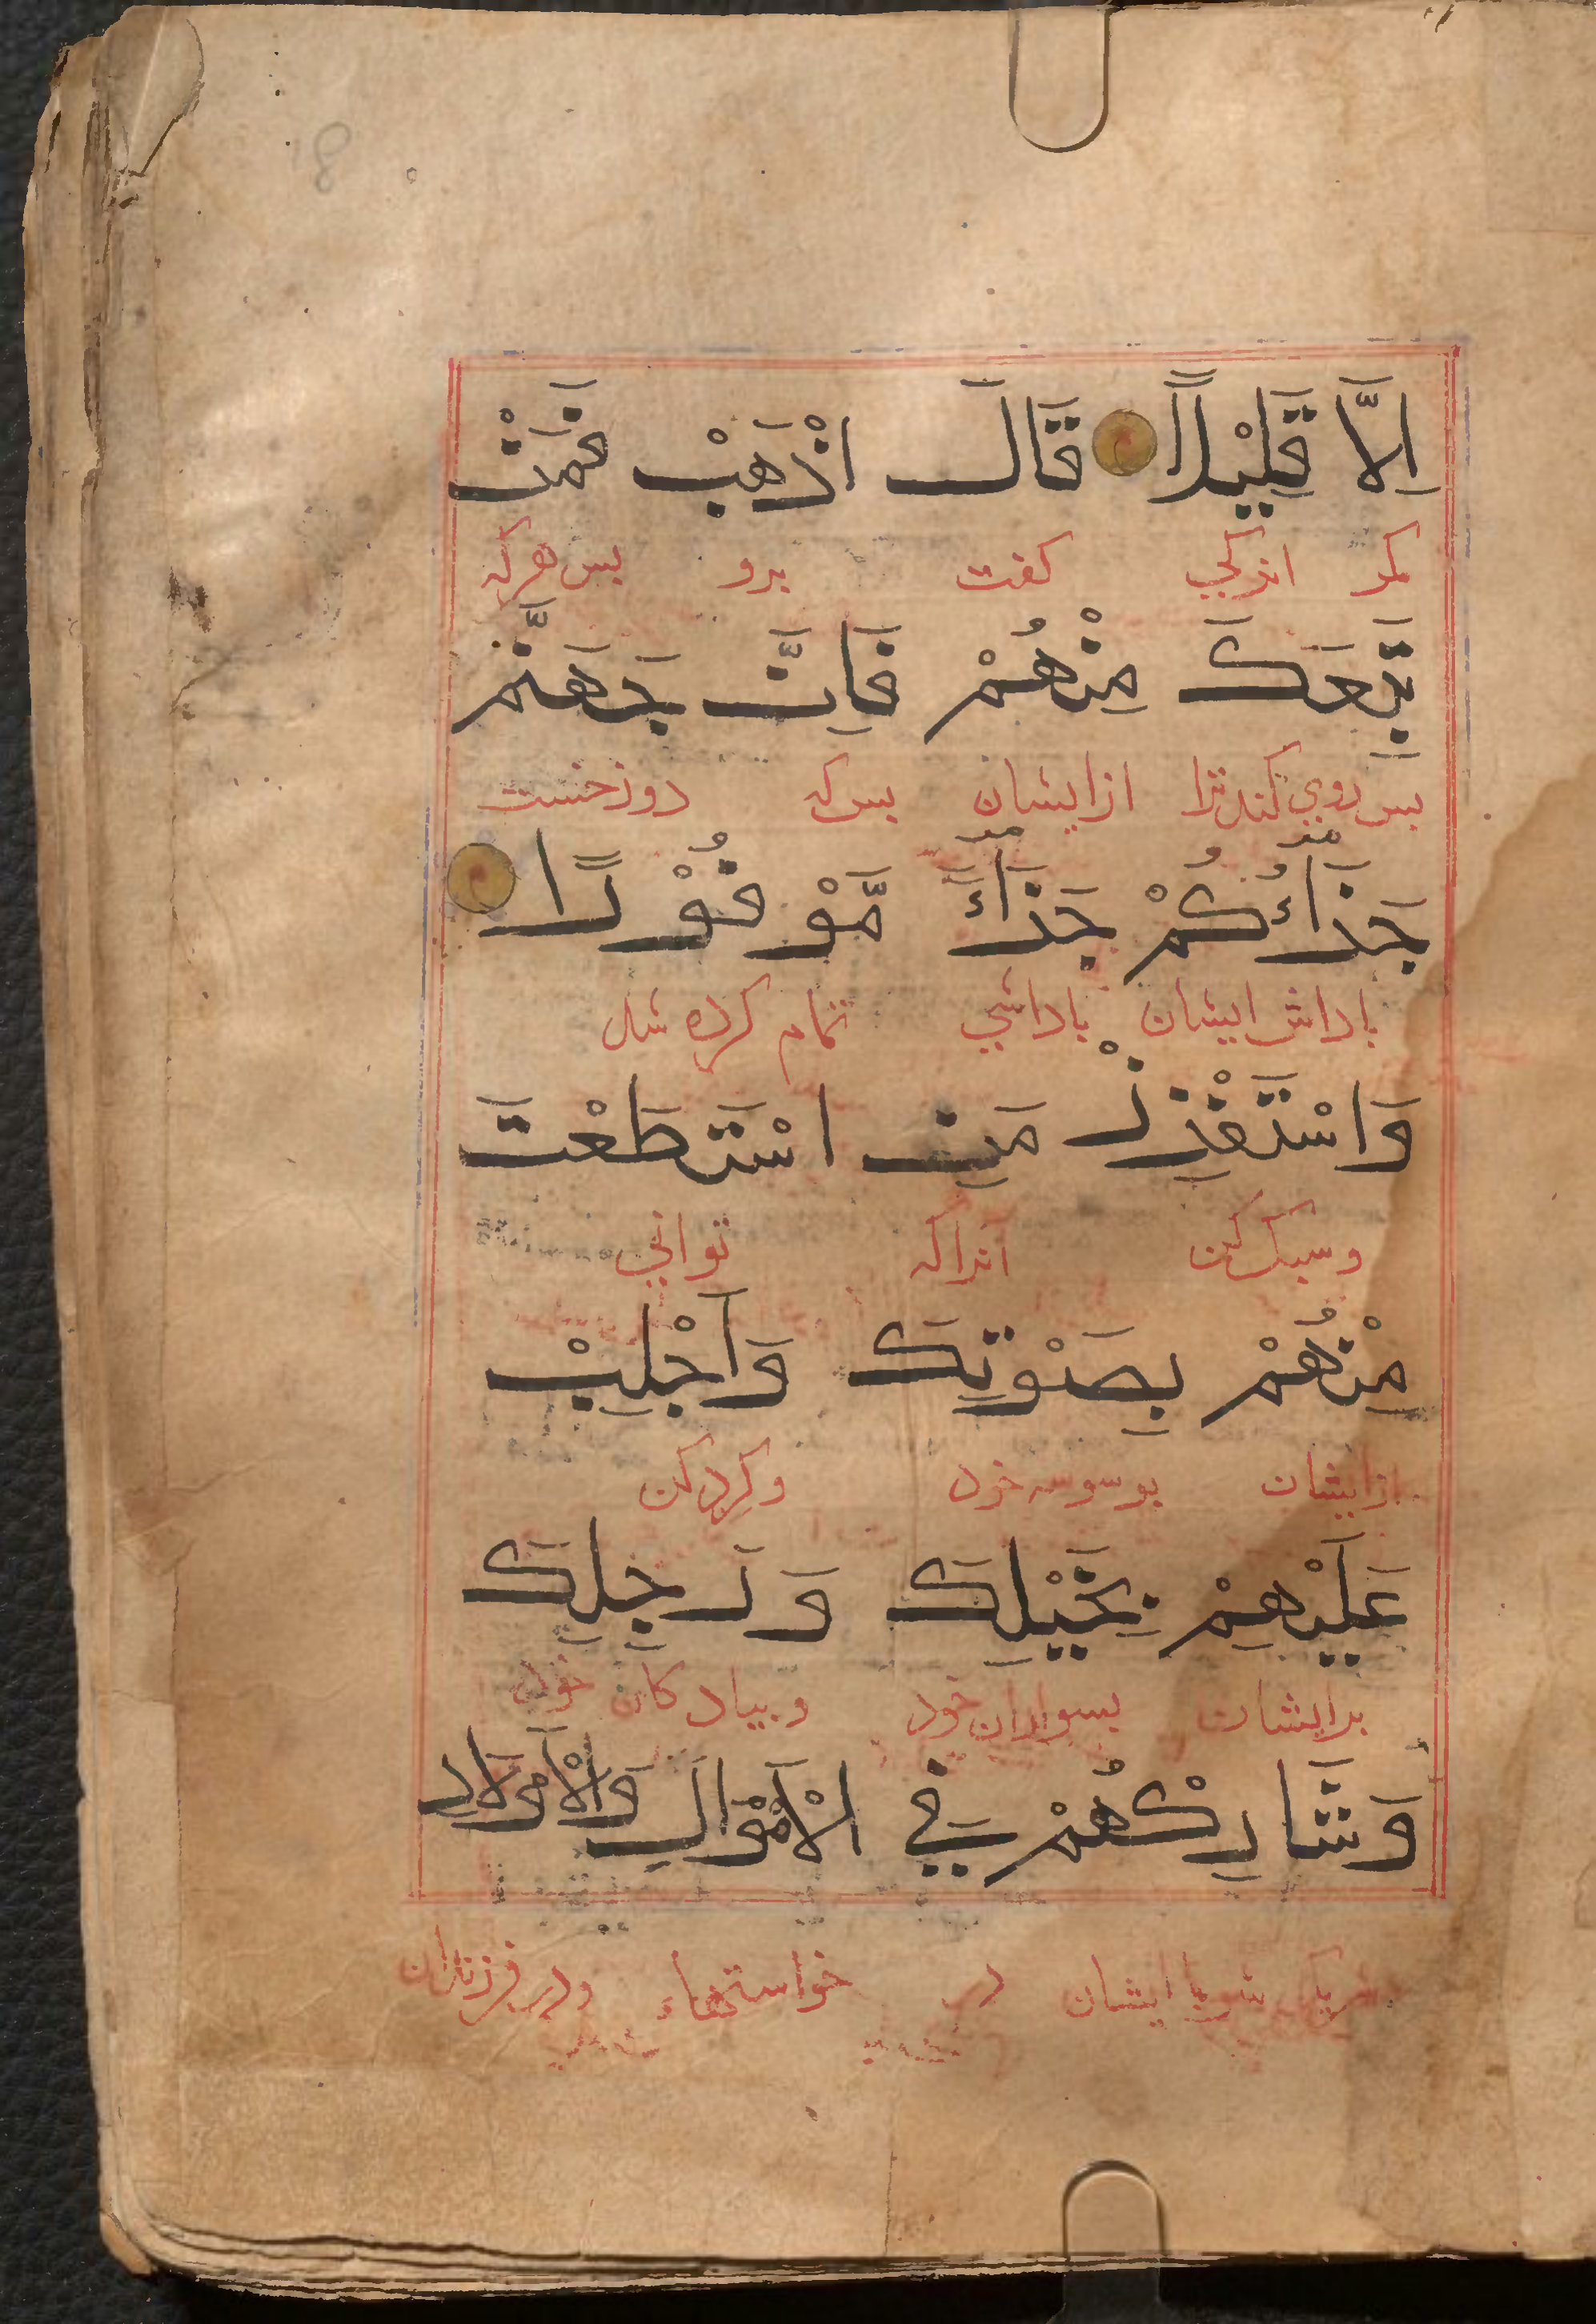 اِلَّا قَلِيْلاً قَالَ اذْهَبْ فَمَنْ
مكر اندكي كفت برو بس هركه
تَبِعَكَ مِنْهُمْ فَاِنَّ جَهَنَّمَ
بس روي كند ترا ازايشان بس كه دوزخست
جَزَاؤُكُمْ جَزَاءً مَّوْفُوْرًا
باداش ايشان باداشي تمام كرده شد
وَاسْتَفْزِزْ مَنِ اسْتَطَعْتَ
وسبك كن انراكه تواني
مِنْهُمْ بِصَوْتِكَ وَاَجْلِبْ
ازايشان بوسوسه خود وكرد كن
عَلَيْهِمْ بِخَيْلِكَ وَرَجِلِكَ
برايشان بسواران خود وبيادكان خود
وَشَارِكْهُمْ فِي الْاَمْوَالِ وَالْاَوْلَادِ
شريك شو با ايشان در خواستهاء ودر فرزندان